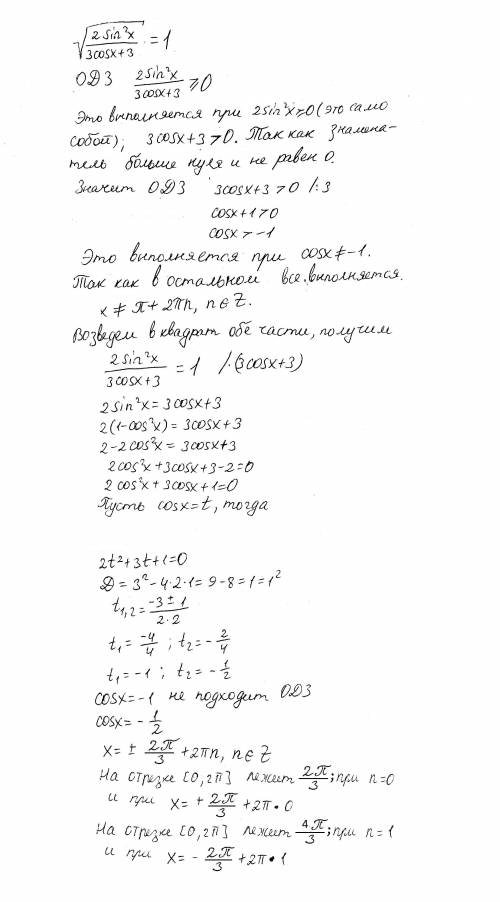 √(2sin²x / 3cosx+3) = 1
ОДЗ 2sin²x / 3cosx+3 ≥ 0
Это выполняется при 2sin²x ≥ 0 (это само
собой), 3cosx+3 > 0. Так как знамена-
тель больше нуля и не равен 0.
Значит ОДЗ 3cosx+3 > 0 /:3
cosx+1 > 0
cosx > -1
Это выполняется при cosx ≠ -1.
Так как в остальном все выполняется.
x ≠ π + 2πn, n ∈ Z.
Возведем в квадрат обе части, получим
2sin²x / 3cosx+3 = 1 /·(3cosx+3)
2sin²x = 3cosx+3
2(1-cos²x) = 3cosx+3
2-2cos²x = 3cosx+3
2cos²x+3cosx+3-2=0
2cos²x+3cosx+1=0
Пусть cosx=t, тогда
2t²+3t+1=0
D = 3²-4·2·1 = 9-8 = 1 = 1²
t1,2 = -3±1 / 2·2
t1 = -4/4 ; t2 = -2/4
t1 = -1 ; t2 = -1/2
cosx=-1 не подходит ОДЗ
cosx = -1/2
x = ± 2π/3 + 2πn, n ∈ Z
На отрезке [0,2π] лежит 2π/3; при n=0
и при x = + 2π/3 + 2π·0
На отрезке [0,2π] лежит 4π/3; при n=1
и при x = - 2π/3 + 2π·1